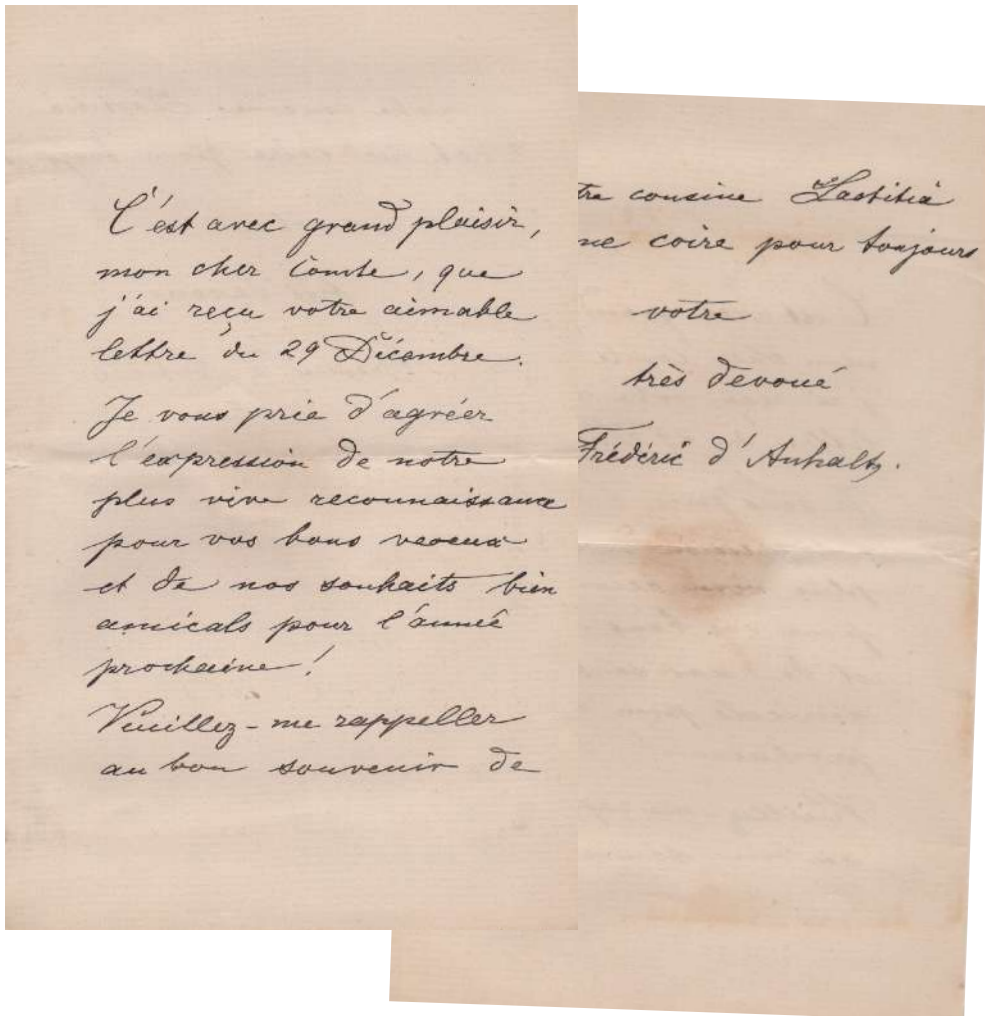 C'est avec grand plaisir,
mon cher Comte, que
j'ai reçu votre aimable
lettre du 29 Décembre.
Je vous prie d'agréer
l'expression de notre
plus vive reconnaissance
pour vos bons voeux
et de nos souhaits bien
amicals pour l'année
prochaine!
Veuillez-me rappeller
au bon souvenir de
tre cousine Laetitia
me coire pour toujours
votre
très dévoué
Frédéric d'Anhalt.